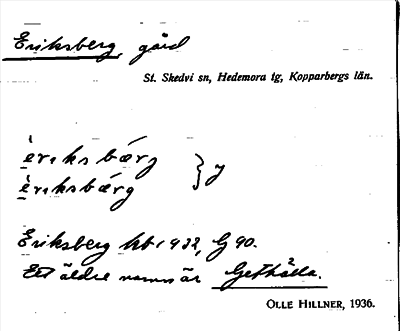 Eriksberg, gård
St. Skedvi sn, Hedemora tg, Kopparbergs län.
èrıksbærj } j
èrıksbærg
Eriksberg kb 1922, G 90.
Ett äldre namn är Gethålla.
OLLE HILLNER, 1936.